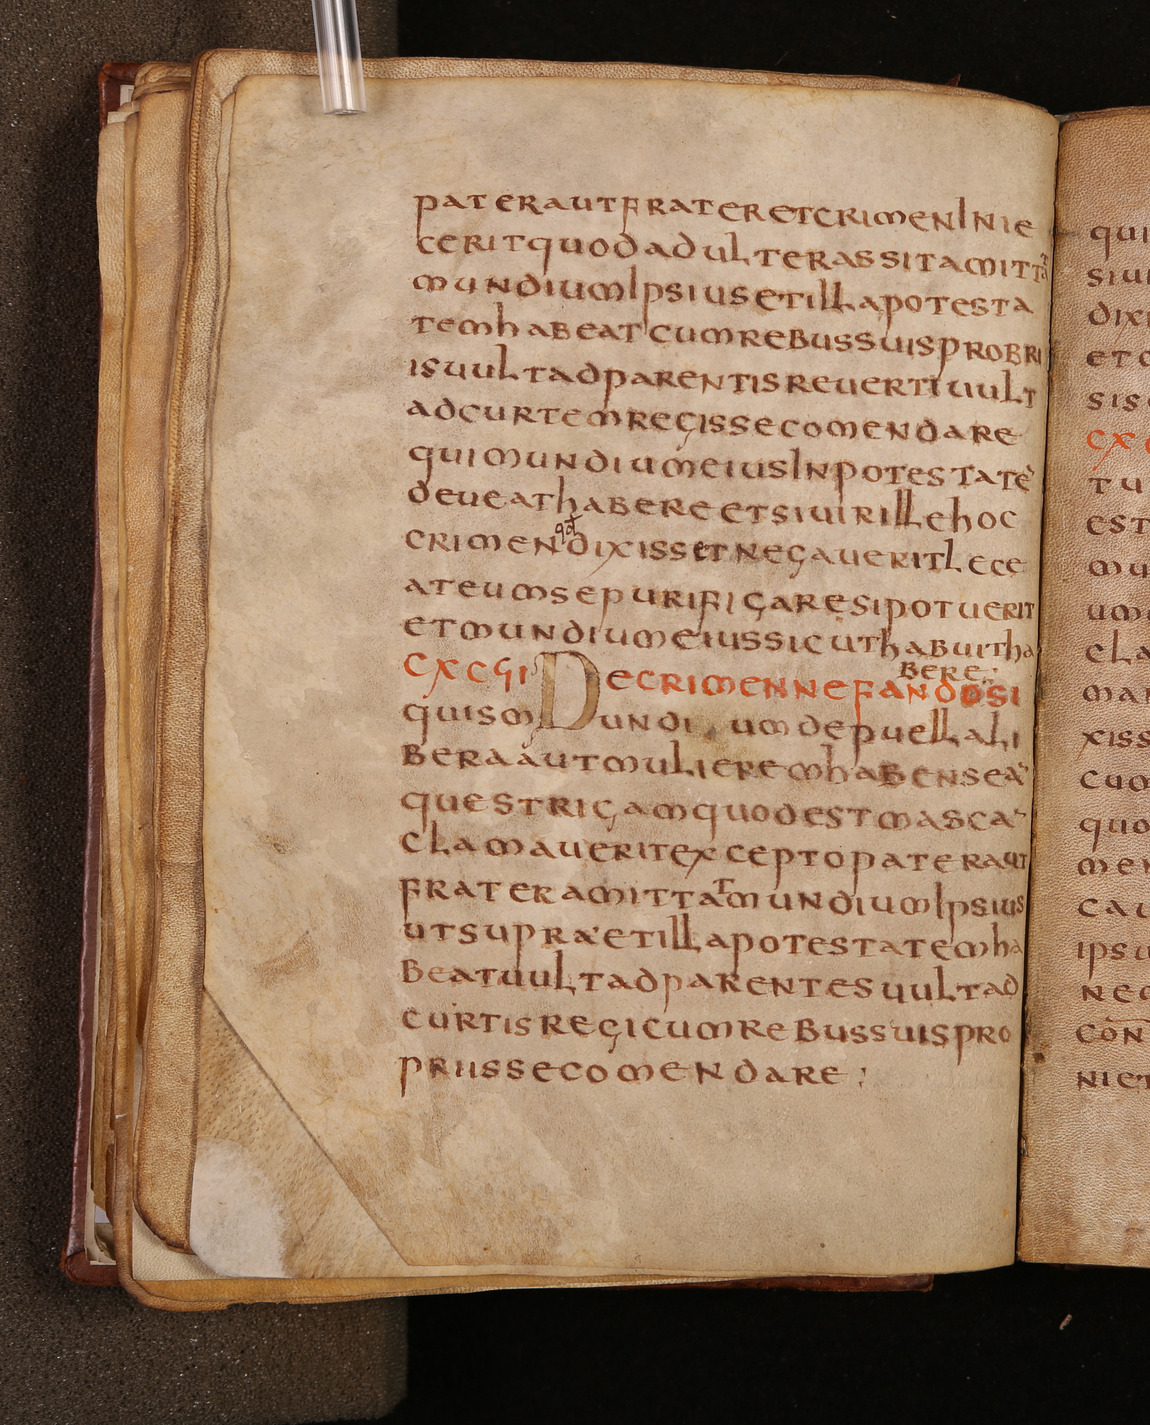 pater aut frater et crimen inie
cerit quod adultera ssit amittat
mundium ipsius et illa potesta
tem habeat cum rebus suis probri
is uult ad parentis reuerti uult
ad curtem regis se comendare
qui mundium eius in potestatē
deueat habere et si uir ille hoc
crimen qđ dixisset negauerit lece
at eum se purificare si potuerit
et mundium eius sicut habuit ha
bere:
CXCVI De crimen nefando si
quis mundium de puella li
bera aut muliere m habens eā
que strigam quod est mascā
clamauerit excepto pater aut
frater amittat mundium ipsius
ut supra et illa potestatem ha
beat uult ad parentes uult ad
curtis regi cum rebus suis pro
priis se comendare :
qui
siui
dix
et c
sis
CXC
tu
est
mu
um
cla
man
xiss
cum
quo
men
cau
ipsu
nec
con
niet